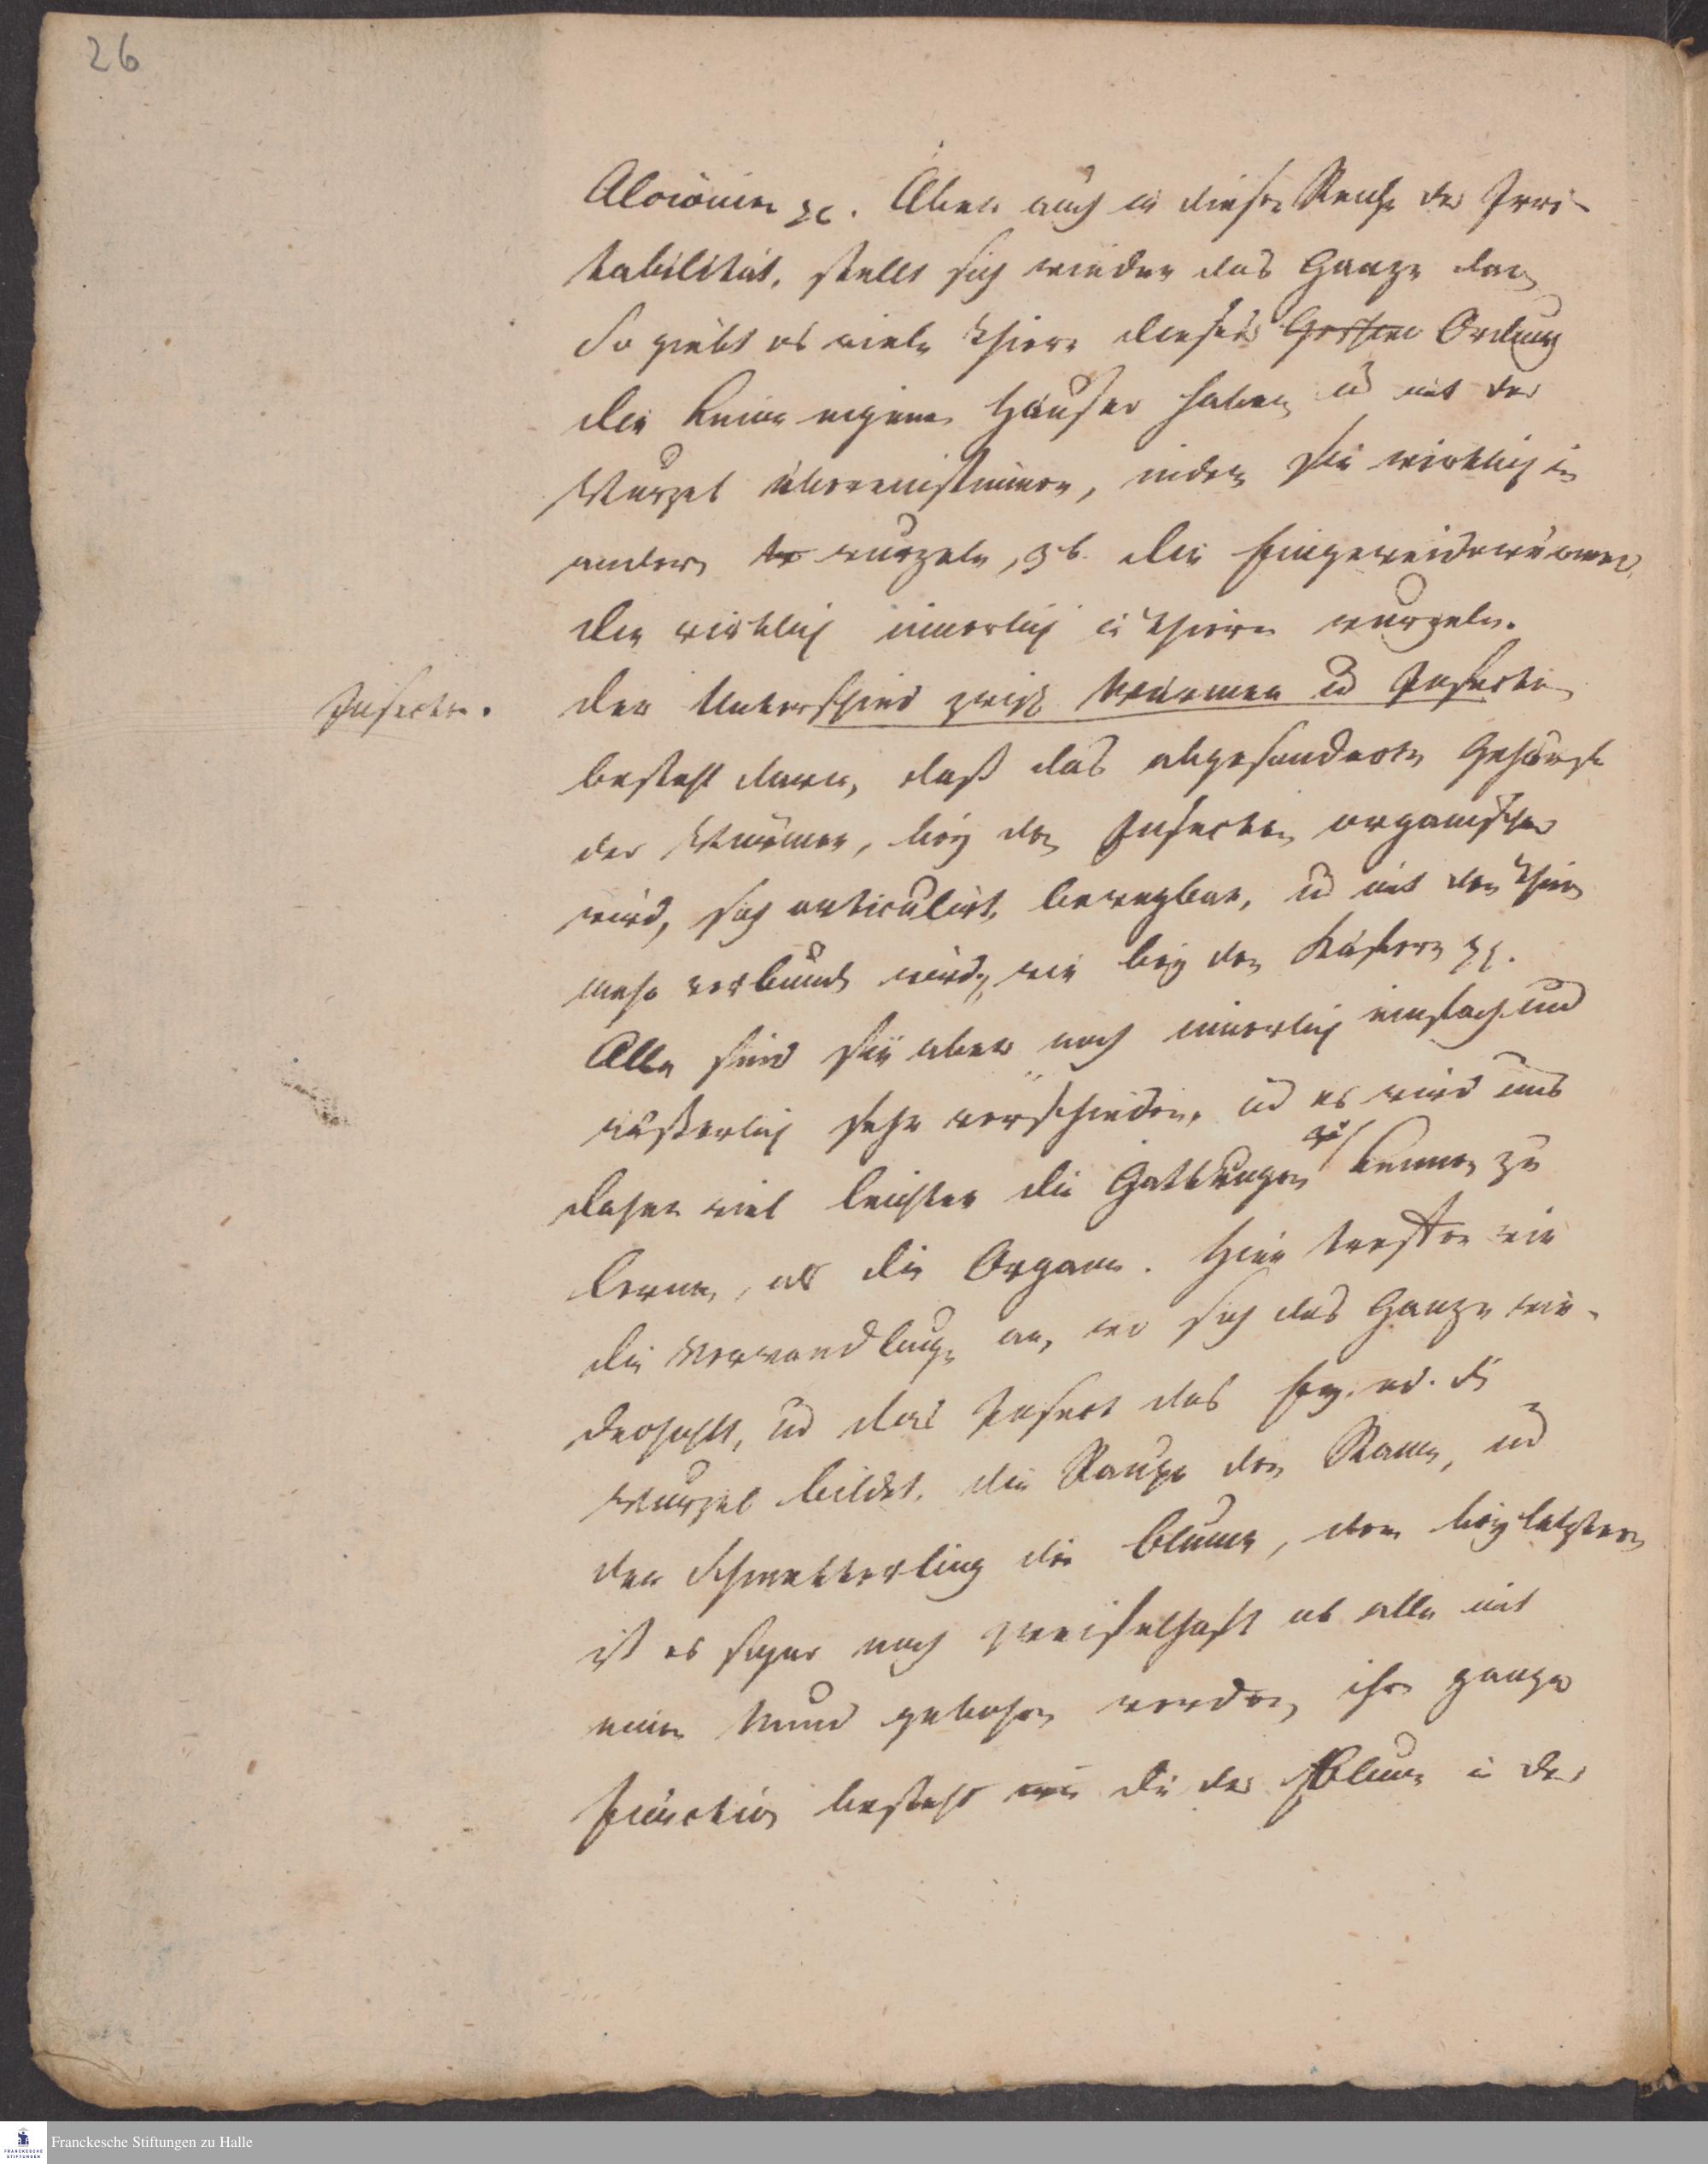 26
Alcionien ꝛc. Aber auch in dieser Reihe der Irri-
tabilität, stellt sich wieder das Ganze dar,
So giebt es viele Thiere dieser Ordnung
die keine eigenen Häuser haben, u mit der
Wurzel übereinstimmen, indem sie wirklich in
andern wurzeln, z b. die Eingeweidewürmer,
die wirklich innerlich in Thieren wurzeln.
Insecten.
Der Unterschied zwisch Würmer ud Insecten
besteht darin, daß das abgesonderte Gehäuse
der Würmer, bey den Insecten organischer
wird, sich articulirt, bewegbar, ud mit dem Thier
mehr verbund wird, wie bey den Käfern ꝛc.
Alle sind sie aber noch innerlich einfach und
äußerlich sehr verschieden, ud es wird uns
daher viel leichter die Gattungen kennen zu
lernen, als die Organe. Hier treffen wir
die Verwandlung an, wo sich das Ganze wie-
derhohlt, ud das Insect das Ey. od. die
Wurzel bildet, die Raupe den Stamm, ud
der Schmetterling die Blume, denn bey letztern
ist es sogar noch zweifelhaft ob alle mit
einem Mund gebohren werden, ihre ganze
Function besteht wie die der Blume in der
Franckesche Stiftungen zu Halle